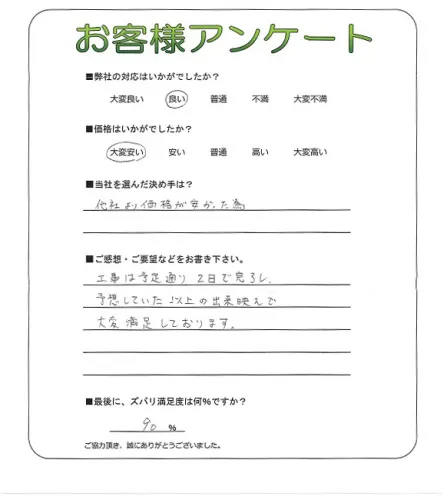 お客様アンケート
■弊社の対応はいかがでしたか？
大変良い 良い 普通 不満 大変不満
■価格はいかがでしたか？
大変安い 安い 普通 高い 大変高い
■当社を選んだ決め手は？
他社より価格が安かった為
■ご感想・ご要望などをお書き下さい。
工事は予定通り2日で完了し、
予想していた以上の出来映えで
大変満足しております。
■最後に、ズバリ満足度は何%ですか？
90 %
ご協力頂き、誠にありがとうございました。